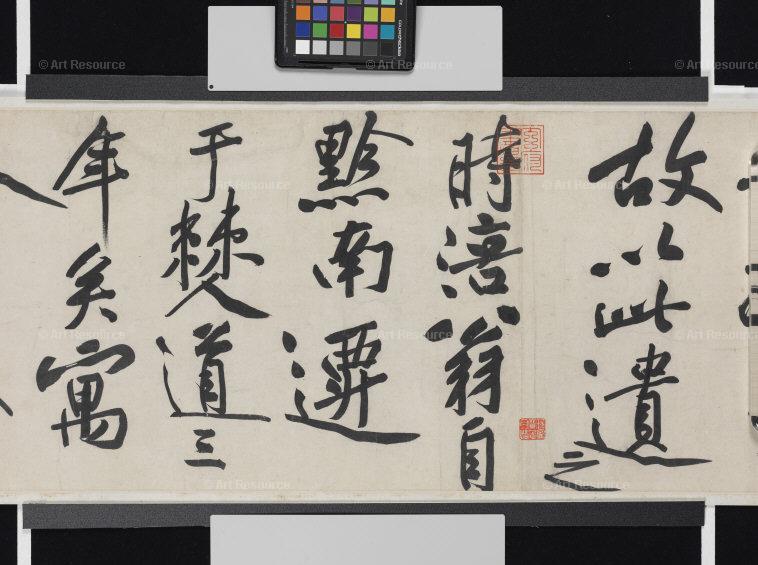 故以此遺之
時涪翁自
黔南遷
于僰道三
年矣寓
© Art Resource
© Art Resource
© Art Resource
© Art Resource
© Art Resource
© Art Resource
© Art Resource
© Art Resource
© Art Resource
© Art Resource